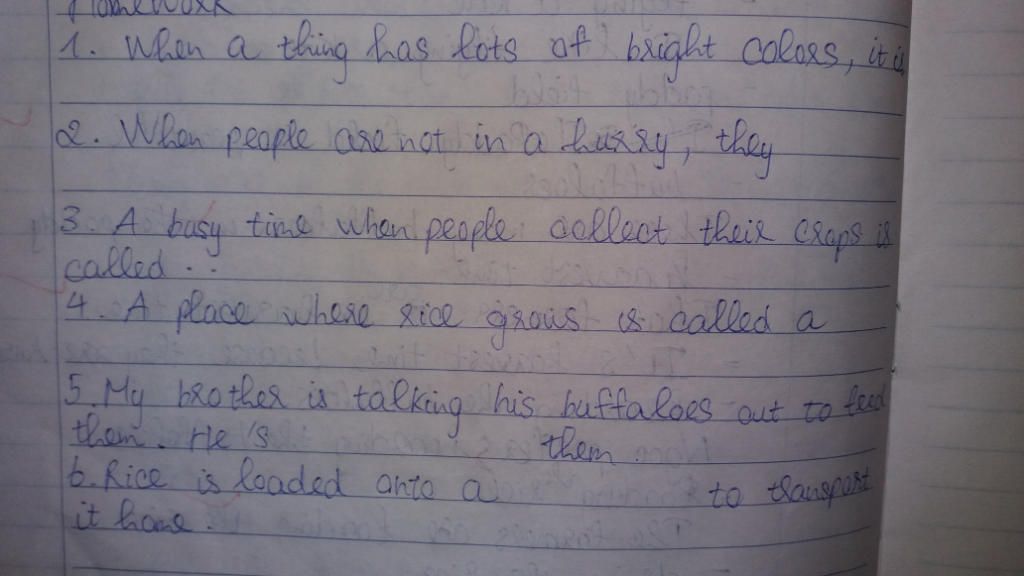 Homework
1. When a thing has lots of bright colors, it is
2. When people are not in a hurry, they
3. A busy time when people collect their crops is
called...
4. A place where rice grows is called a
5. My brother is talking his buffaloes out to feed
them. He's them.
6. Rice is loaded onto a to transport
it home.